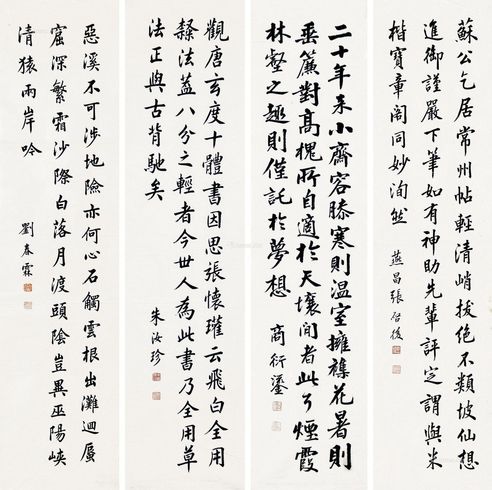 蘇公乞居常州帖輕清峭拔絕不類坡仙想
進御謹嚴下筆如有神助先輩評定謂與米
楷寶章阁同妙洵然
燕昌張启後
二十年来小齋容膝寒則温室擁襍花暑則
垂簾對高槐所自適於天壤间者此乃煙霞
林壑之趣則僅託於夢想
商衍鎏
觀唐玄度十體書因思張懷瓘云飛白全用
隸法蓋八分之輕者今世人為此書乃全用草
法正與古背馳矣
朱汝珍
惡溪不可涉地險亦何心石觸雲根出灘迴蜃
窟深繁霜沙際白落月渡頭陰豈異巫陽峽
清猿兩岸吟
劉春霖